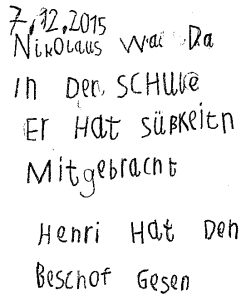 7.12.2015
Nikolaus war Da
in Der SCHULe
Er Hat SüßKeitn
Mitgebracht
Henri Hat Den
Beschof Gesen